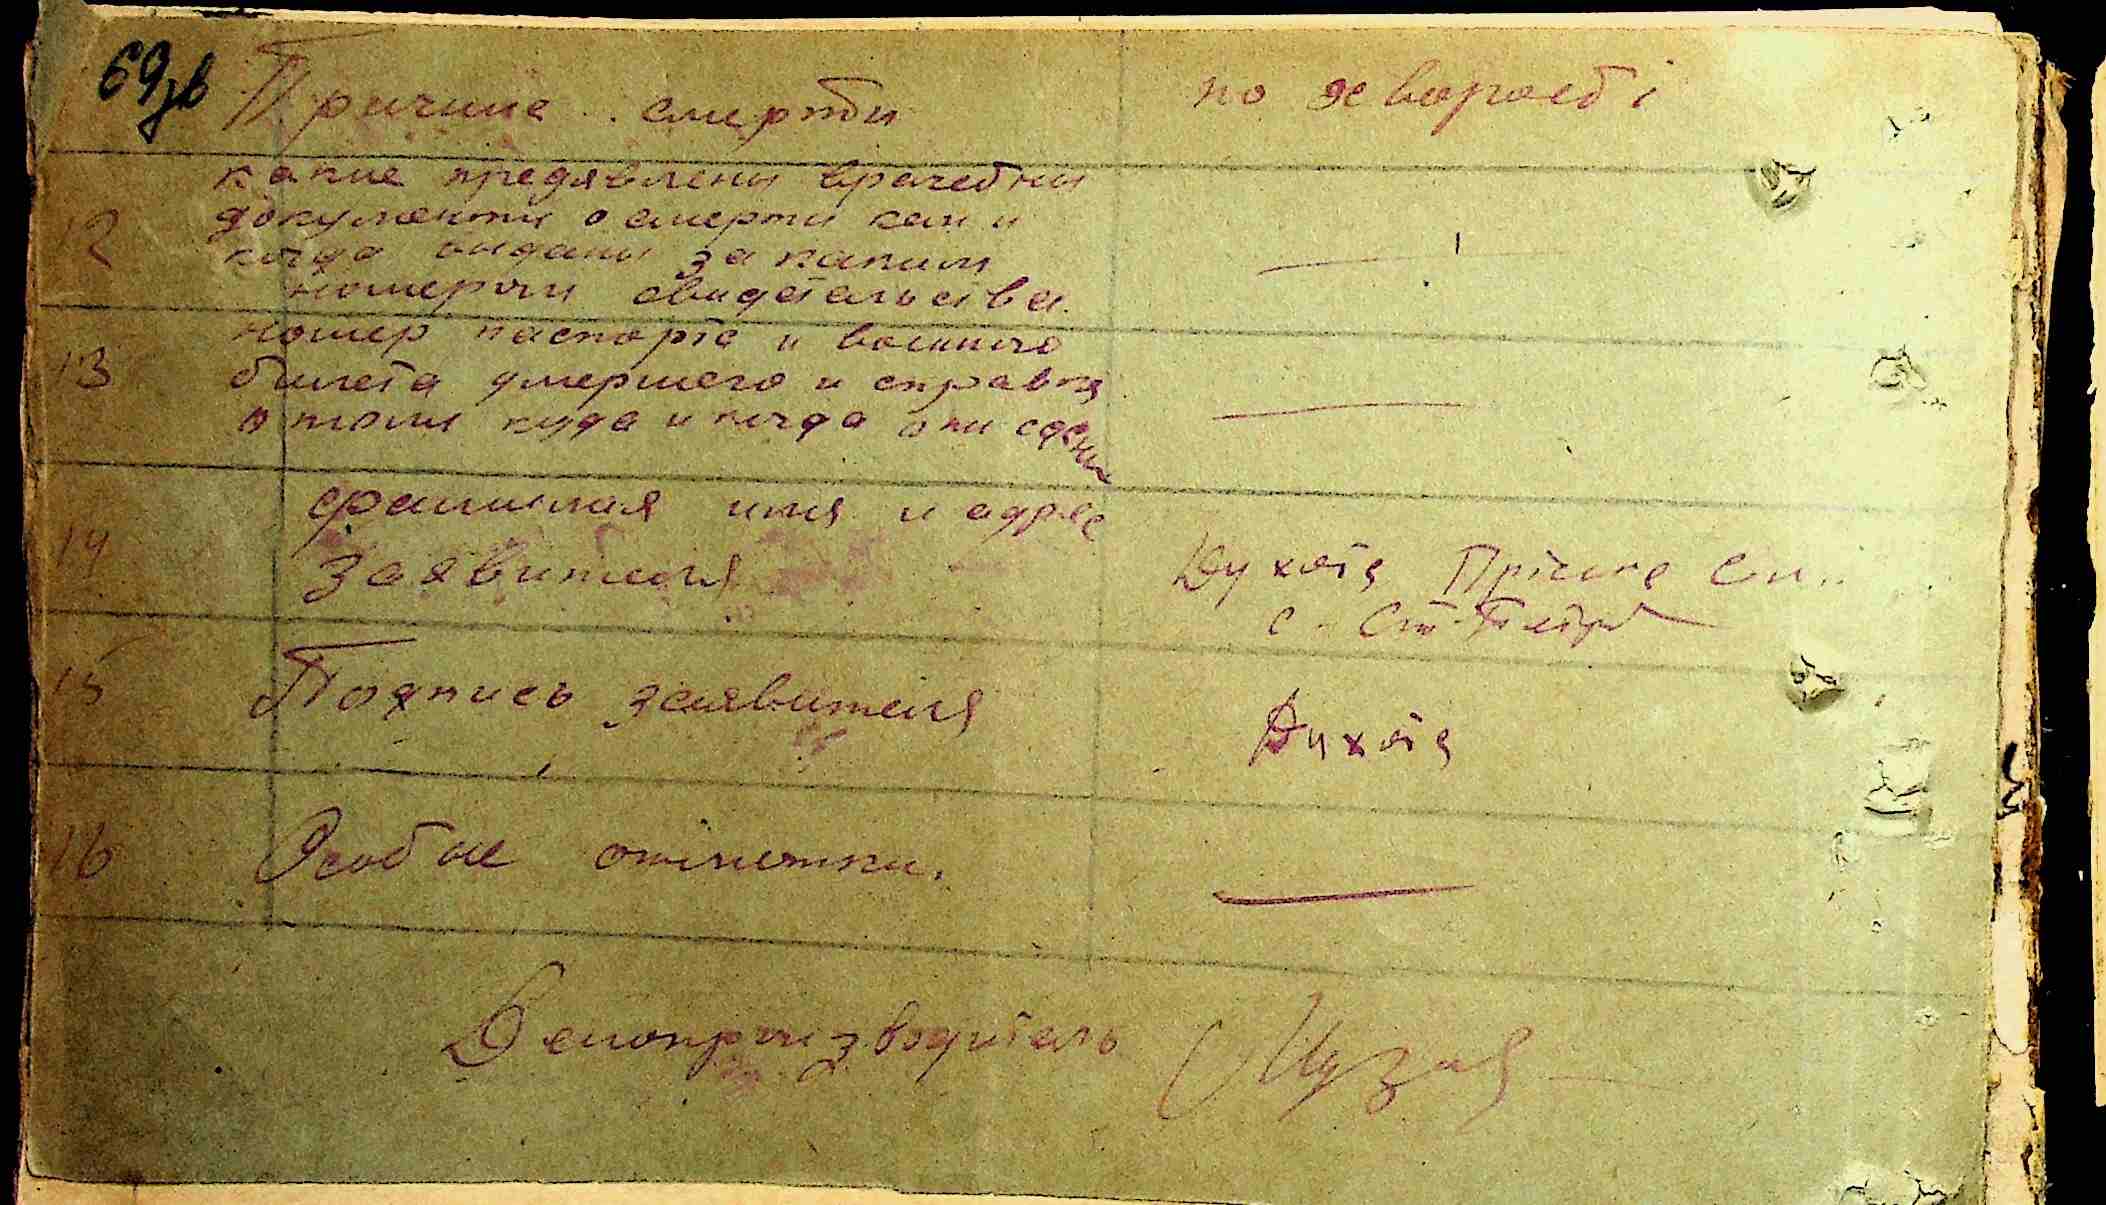 69зв
Причина смерти по хворобі
12 какие предявлени врачебни
документи о смерти кем и
когда видани за каким
номером свидетельства
13 номер паспорта и военного
билета умершего и справка
о том куда и когда они сдани
14 фамилия имя и адрес
заявителя Духота
с. Ст.
15 Подпись заявителя Духота
16 Особые отметки.
Делопроизводитель